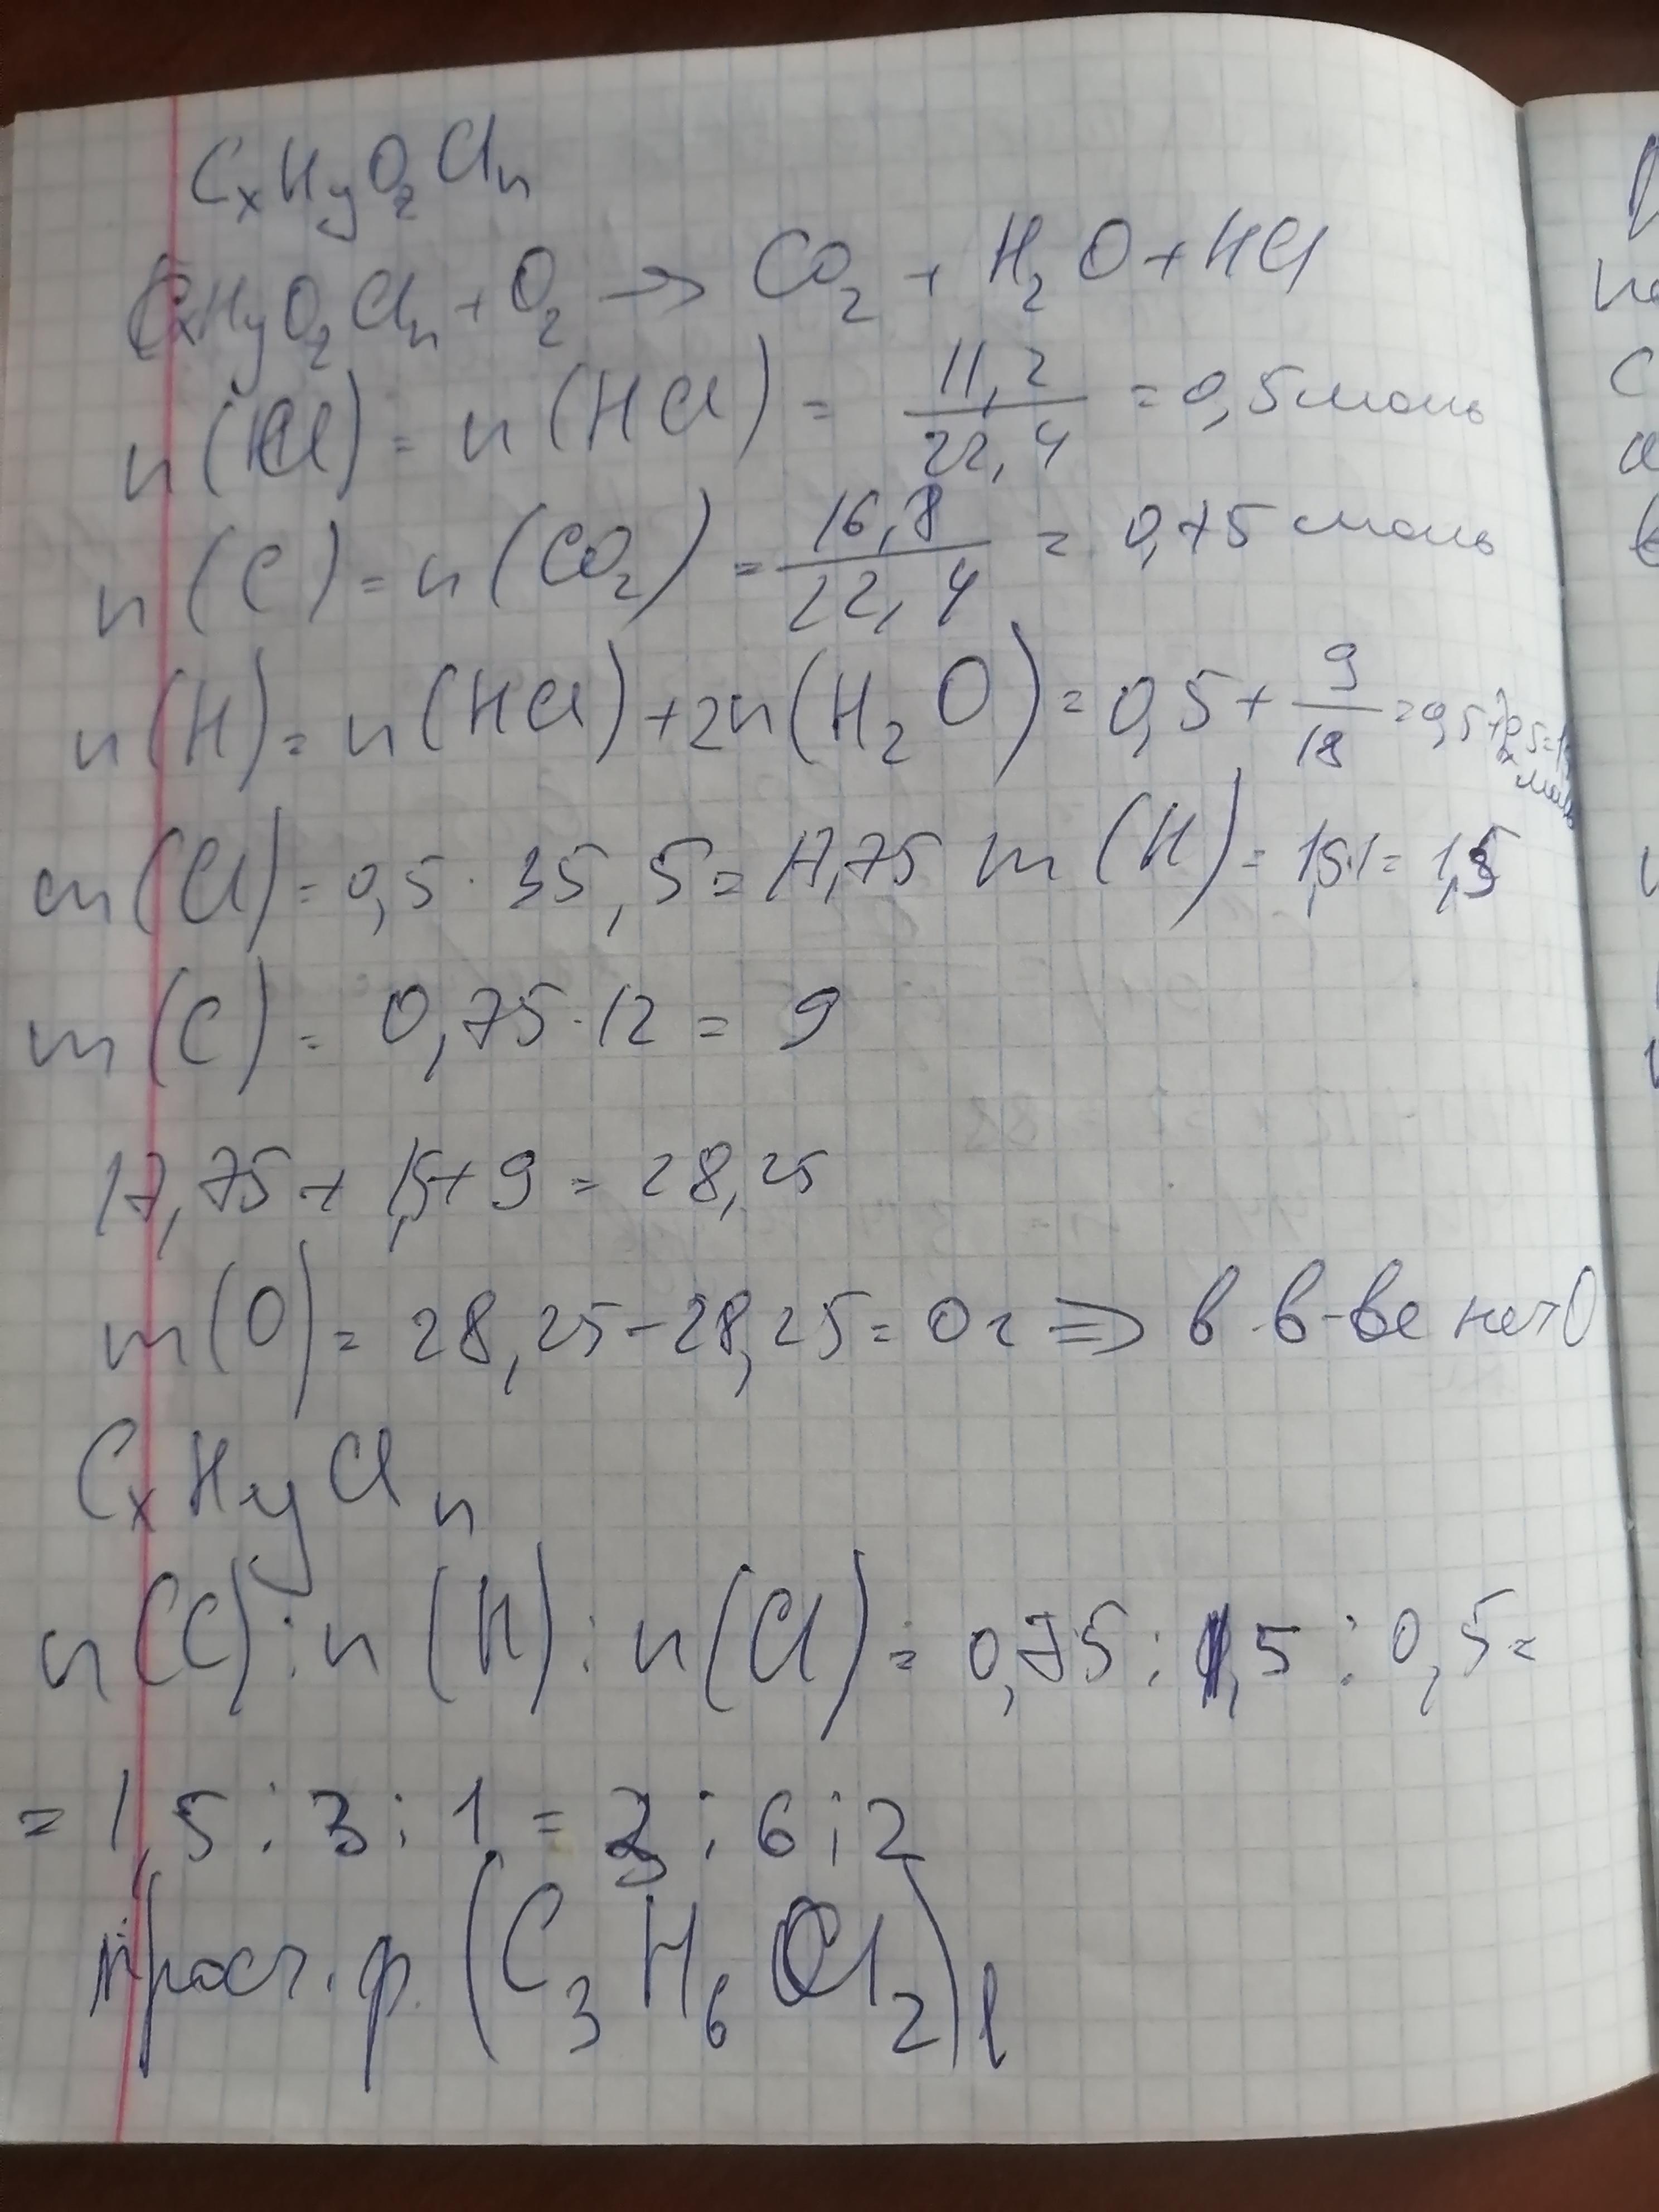 CxHyOzCln
CxHyOzCln + O2 → CO2 + H2O + HCl
n(Cl) = n(HCl) = 11,2/22,4 = 0,5 моль
n(C) = n(CO2) = 16,8/22,4 = 0,75 моль
n(H) = n(HCl) + 2n(H2O) = 0,5 + 9/18 = 0,5 + 2·0,5 = 1,5 моль
m(Cl) = 0,5 · 35,5 = 17,75 m(H) = 1,5·1 = 1,5
m(C) = 0,75·12 = 9
17,75 + 1,5 + 9 = 28,25
m(O) = 28,25 - 28,25 = 0 г ⇒ в в-ве нет O
CxHyCln
n(C) : n(H) : n(Cl) = 0,75 : 1,5 : 0,5 =
= 1,5 : 3 : 1 = 3 : 6 : 2
прост. ф. (C3H6Cl2)l